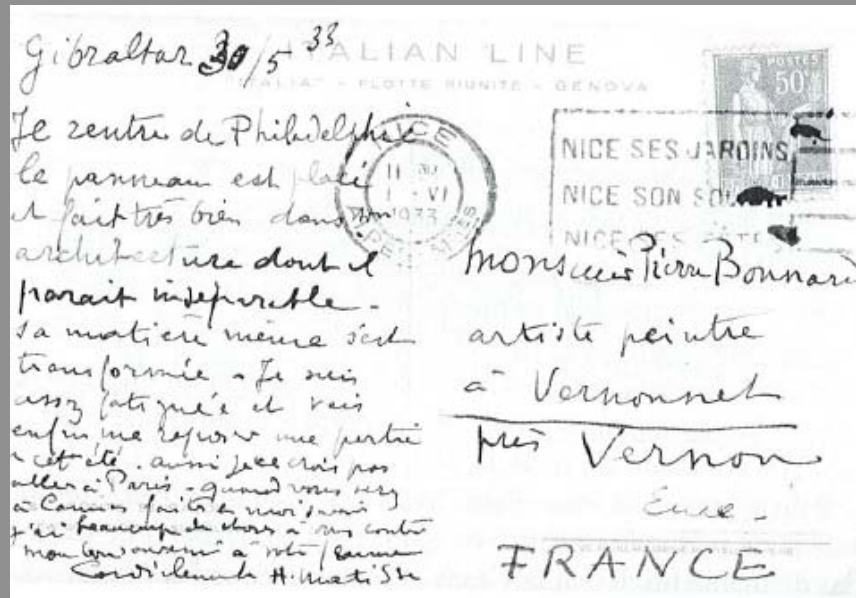 ITALIAN LINE
"ITALIA" - FLOTTE RIUNITE - GENOVA
Gibraltar 30/5 33
Je rentre de Philadelphie
le panneau est placé
et fait très bien dans son
architecture dont il
parait inséparable -
sa matière même s'est
transformée. Je suis
assez fatigué et vais
enfin me reposer une partie
cet été. aussi je ne crois pas
aller à Paris - quand vous serez
à Cannes faites moi
j'ai beaucoup de choses à vous conter
mon bon souvenir à votre femme
Cordialement H. Matisse
POSTES
50c
NICE
1 - VI
1933
NICE SES JARDINS
NICE SON
NICE SES FÊTES
Monsieur Pierre Bonnard
artiste peintre
à Vernonnet
près Vernon
Eure -
FRANCE